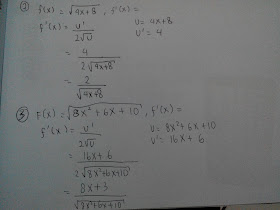 ② f(x) = √4x+8 , f'(x) =
f'(x) = U' / 2√U    U = 4x+8
U' = 4
= 4 / 2√4x+8
= 2 / √4x+8
③ F(x) = √8x² + 6x + 10 , f'(x) =
f'(x) = U' / 2√U    U = 8x² + 6x + 10
U' = 16x + 6
= 16x + 6 / 2√8x² + 6x + 10
= 8x + 3 / √8x² + 6x + 10